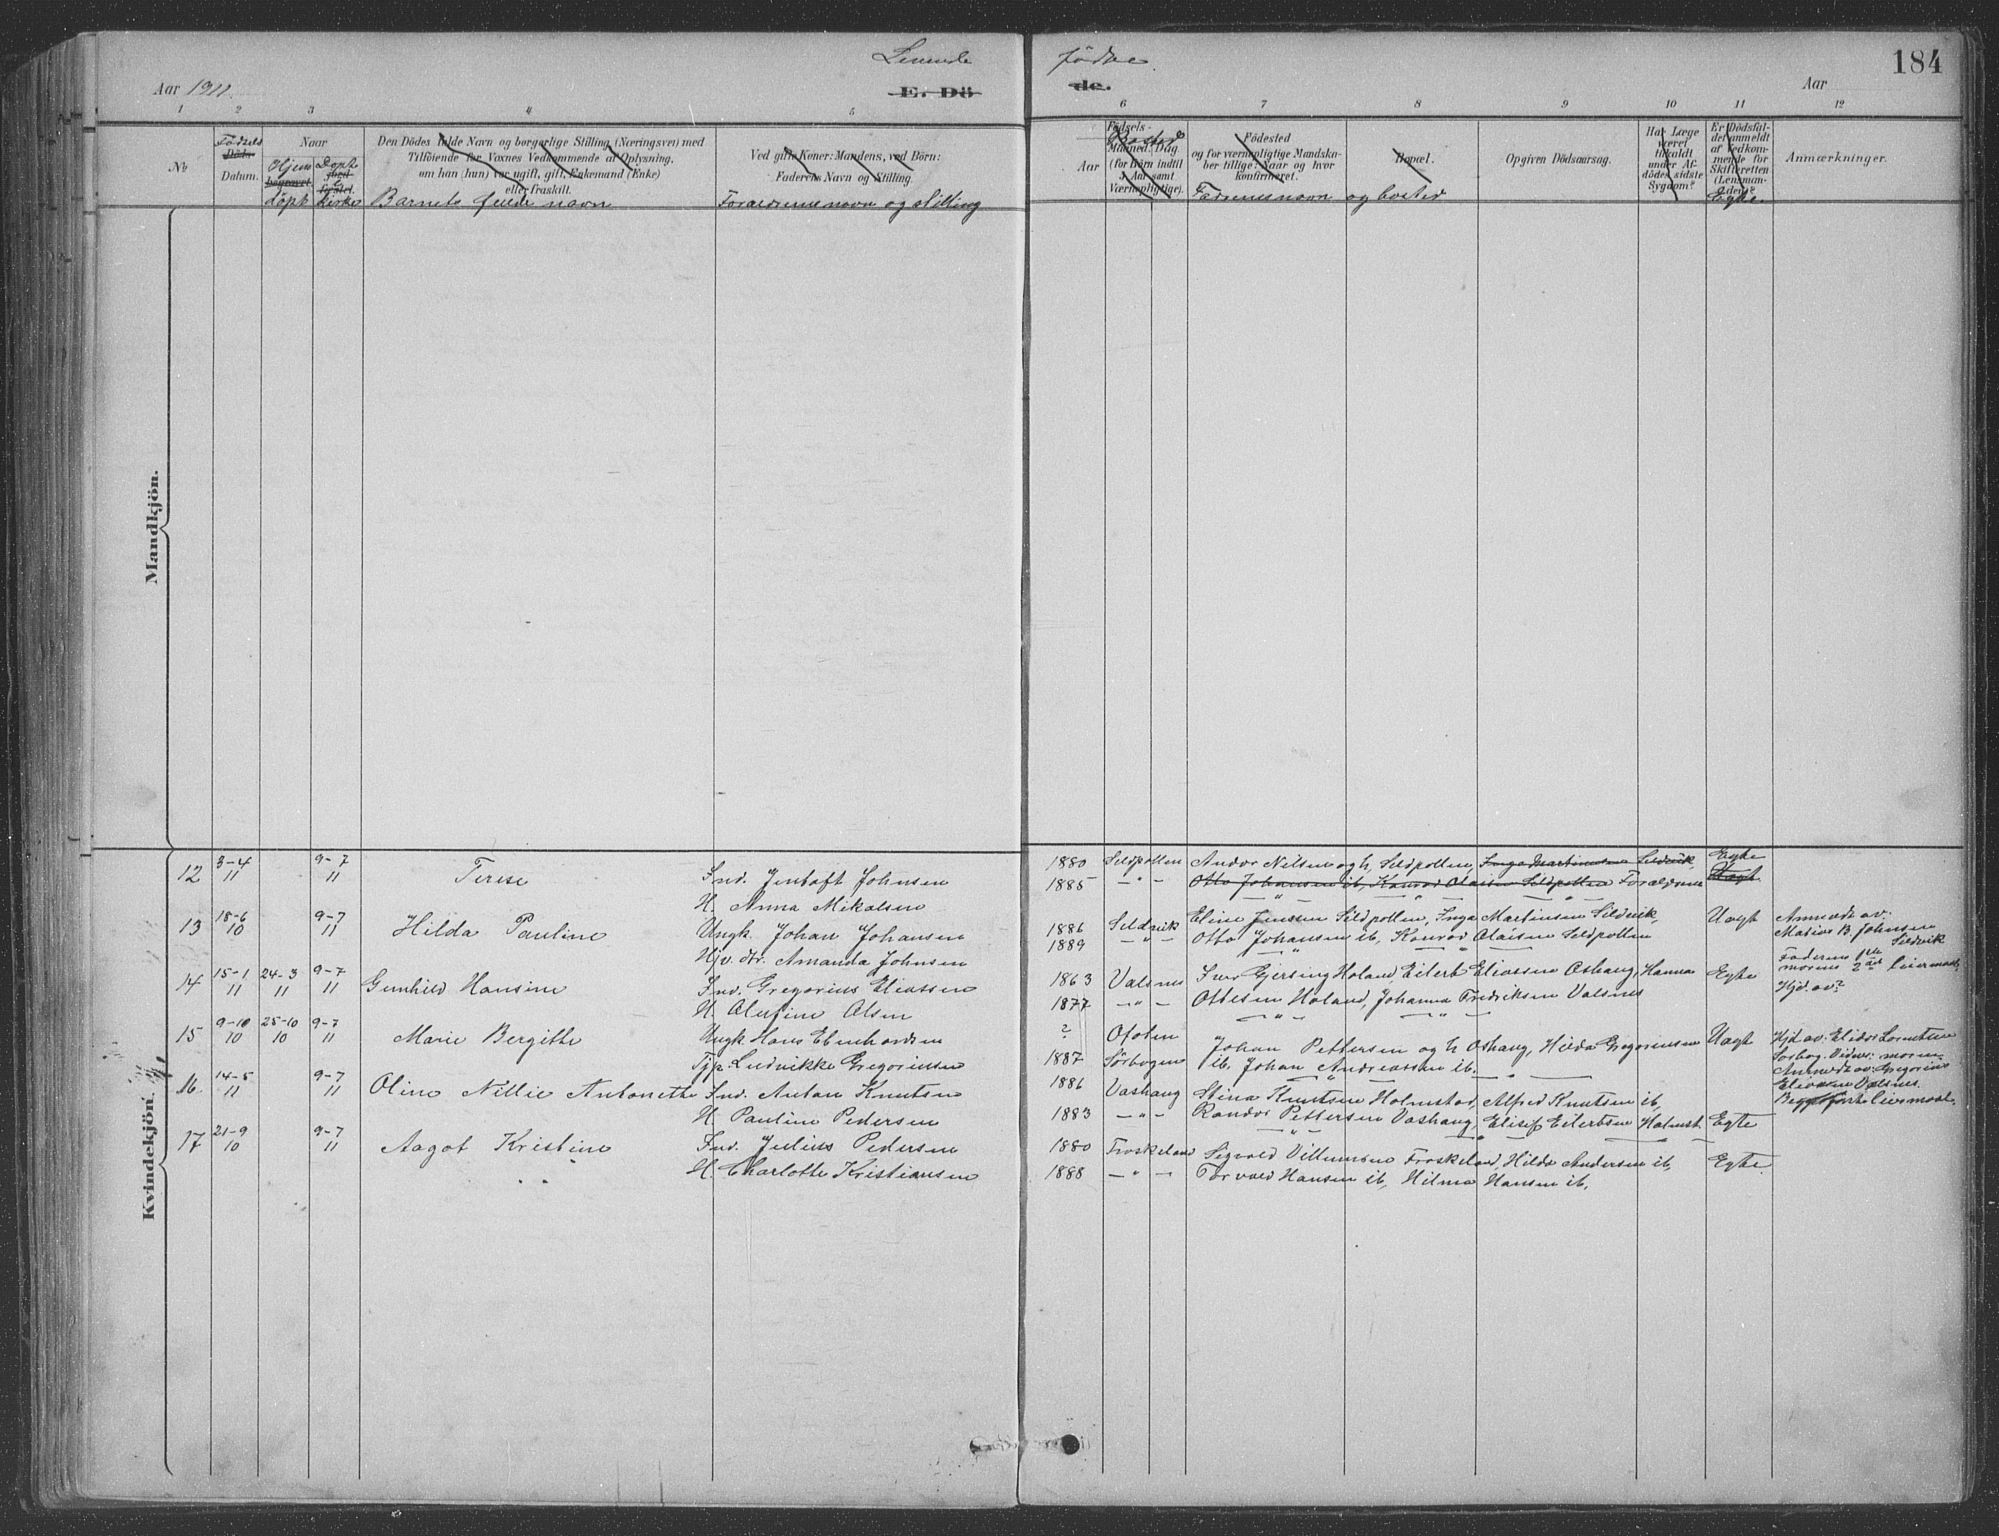 Levende fødte.
184
Aar 1911.
E. Dö
de.
Aar
1 2 3 4 5 6 7 8 9 10 11 12
№
Fødsels
Döds-
Datum.
Naar
Hjem
begravet.
döpt
Döpt
jord
fæstet.
kirke
Den Dödes fulde Navn og borgerlige Stilling (Næringsvei) med
Tilföiende for Voxnes Vedkommende af Oplysning,
om han (hun) var ugift, gift, Enkemand (Enke)
eller fraskilt.
Barnets fulde navn
Ved gifte Koner: Mandens, ved Börn:
Faderens Navn og Stilling.
Forældrenes navn og stilling
Aar
Födsels-
Bosted
Maaned. Dag
(for Börn indtil
5 Aar samt
Værnepligtige).
Födested
og for værnepligtige Mandska-
ber tillige: Naar og hvor
konfirmeret.
Faddernes navn og bosted
Bopæl.
Opgiven Dödsaarsag.
Har Læge
været
tilkaldt
under Af-
dödes sidste
Sygdom?
Er Dödsfal-
det anmeldt
af Vedkom-
mende for
Skifteretten
(Lensman-
den)?
Egte.
Anmærkninger.
Mandkjön.
Kvindekjön.
12 3-4 11 9-7 11 Terese Ind. Jentoft Johnsen 1880 Seldpollen Andor Nilsen og h, Seldpollen, Inga Martinsen Seldvik Egte
H. Anna Mikalsen 1885 — " — Otto Johansen ib, Konrad Olaisen Seldpollen Forældrene Uagt.
13 18-6 10 9-7 11 Hilda Pauline Ungk. Johan Johansen 1886 Seldvik Eline Jenssen Seldpollen, Inga Martinsen Seldvik, Uagt Anmeldt av:
Gjv. dtr. Amanda Johnsen 1889 — " — Otto Johansen ib, Konrad Olaisen Seldpollen Matias B. Johnsen
Seldvik
Faderens 1ste
morens 2det leiermaal.
14 15-1 11 24-3 11 9-7 11 Gunhild Hansine Ind. Gregorius Eliassen 1863 Valsnes Iver Gjersing Holand, Eilert Eliassen Oshaug, Hanna Egte Hjd. av?
H. Olufine Olsen 1877 — " — Ottesen Holand, Johanna Fredriksen Valsnes
15 9-10 10 25-10 10 9-7 11 Marie Bergithe Ungk Hans Ebenhardsen ? Ofoten Johan Pettersen og h Oshaug, Hilda Gregoriussen Uagt Hjd av: Elidor Lorntsen
Tjp. Ludvikke Gregoriussen 1887 Sörbogen ib. Johan Andreassen ib. Sørbog. Vidner: moren
Anmeldt av: Gregorius
Eliassen Valsnes.
Begges første leiermaal.
16 14-5 11 9-7 11 Oline Nillie Antonette Ind. Anton Knutsen 1886 Vashaug Stina Knutsen Holmstad, Alfred Knutsen ib,
H. Pauline Pedersen 1883 — " — Randor Pettersen Vashaug, Elisef Eilertsen Holmst. Egte
17 21-9 10 9-7 11 Aagot Kristine Ind. Julius Pedersen 1880 Froskeland Sigvald Villumsen Froskeland, Hilda Andersen ib, Egte.
H. Charlotte Kristiansen 1888 — " — Torvald Hansen ib, Hilma Hansen ib.